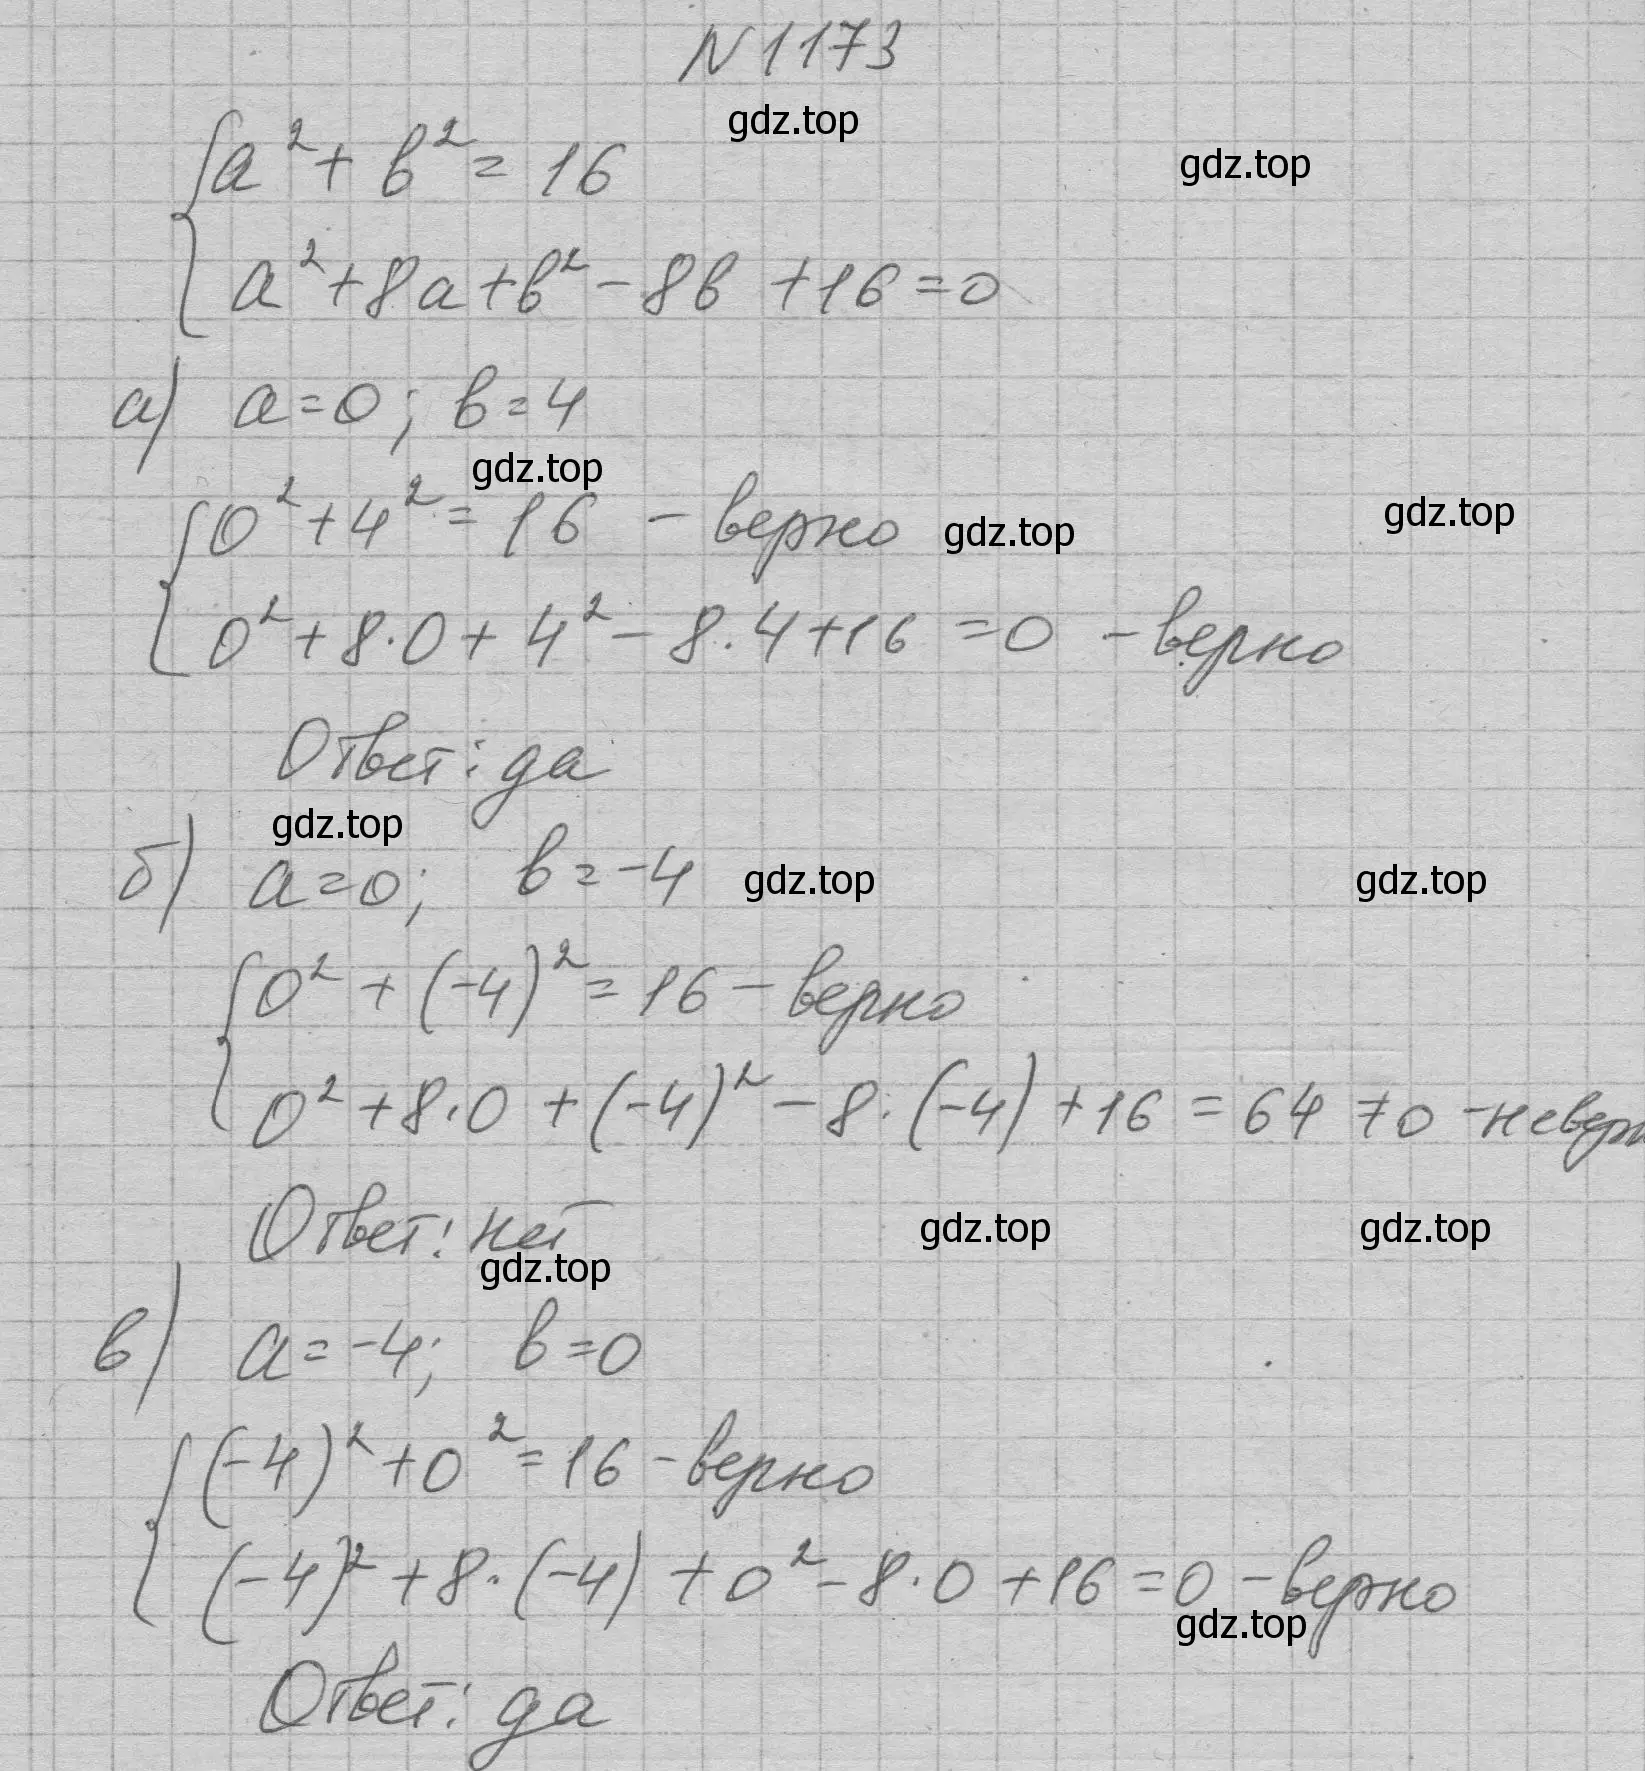 N 1173
gdz.top
a² + b² = 16
gdz.top
a² + 8a + b² - 8b + 16 = 0
а) a = 0; b = 4
gdz.top
0² + 4² = 16 - верно
gdz.top
gdz.top
0² + 8·0 + 4² - 8·4 + 16 = 0 - верно
Ответ: да
gdz.top
б) a = 0; b = -4
gdz.top
gdz.top
0² + (-4)² = 16 - верно
0² + 8·0 + (-4)² - 8·(-4) + 16 = 64 ≠ 0 - неверн
Ответ: нет
gdz.top
gdz.top
gdz.top
в) a = -4; b = 0
(-4)² + 0² = 16 - верно
(-4)² + 8·(-4) + 0² - 8·0 + 16 = 0 - верно
gdz.top
Ответ: да